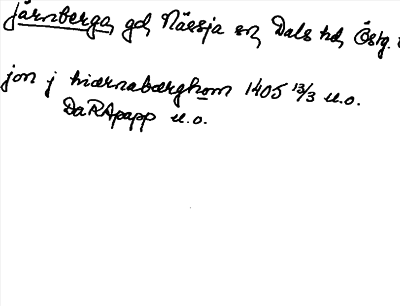 Järnberga, gd, Nässja sn, Dals hd, Östg.
jon j hiærnabærghom 1405 13/3 u.o.
DaRApapp u.o.